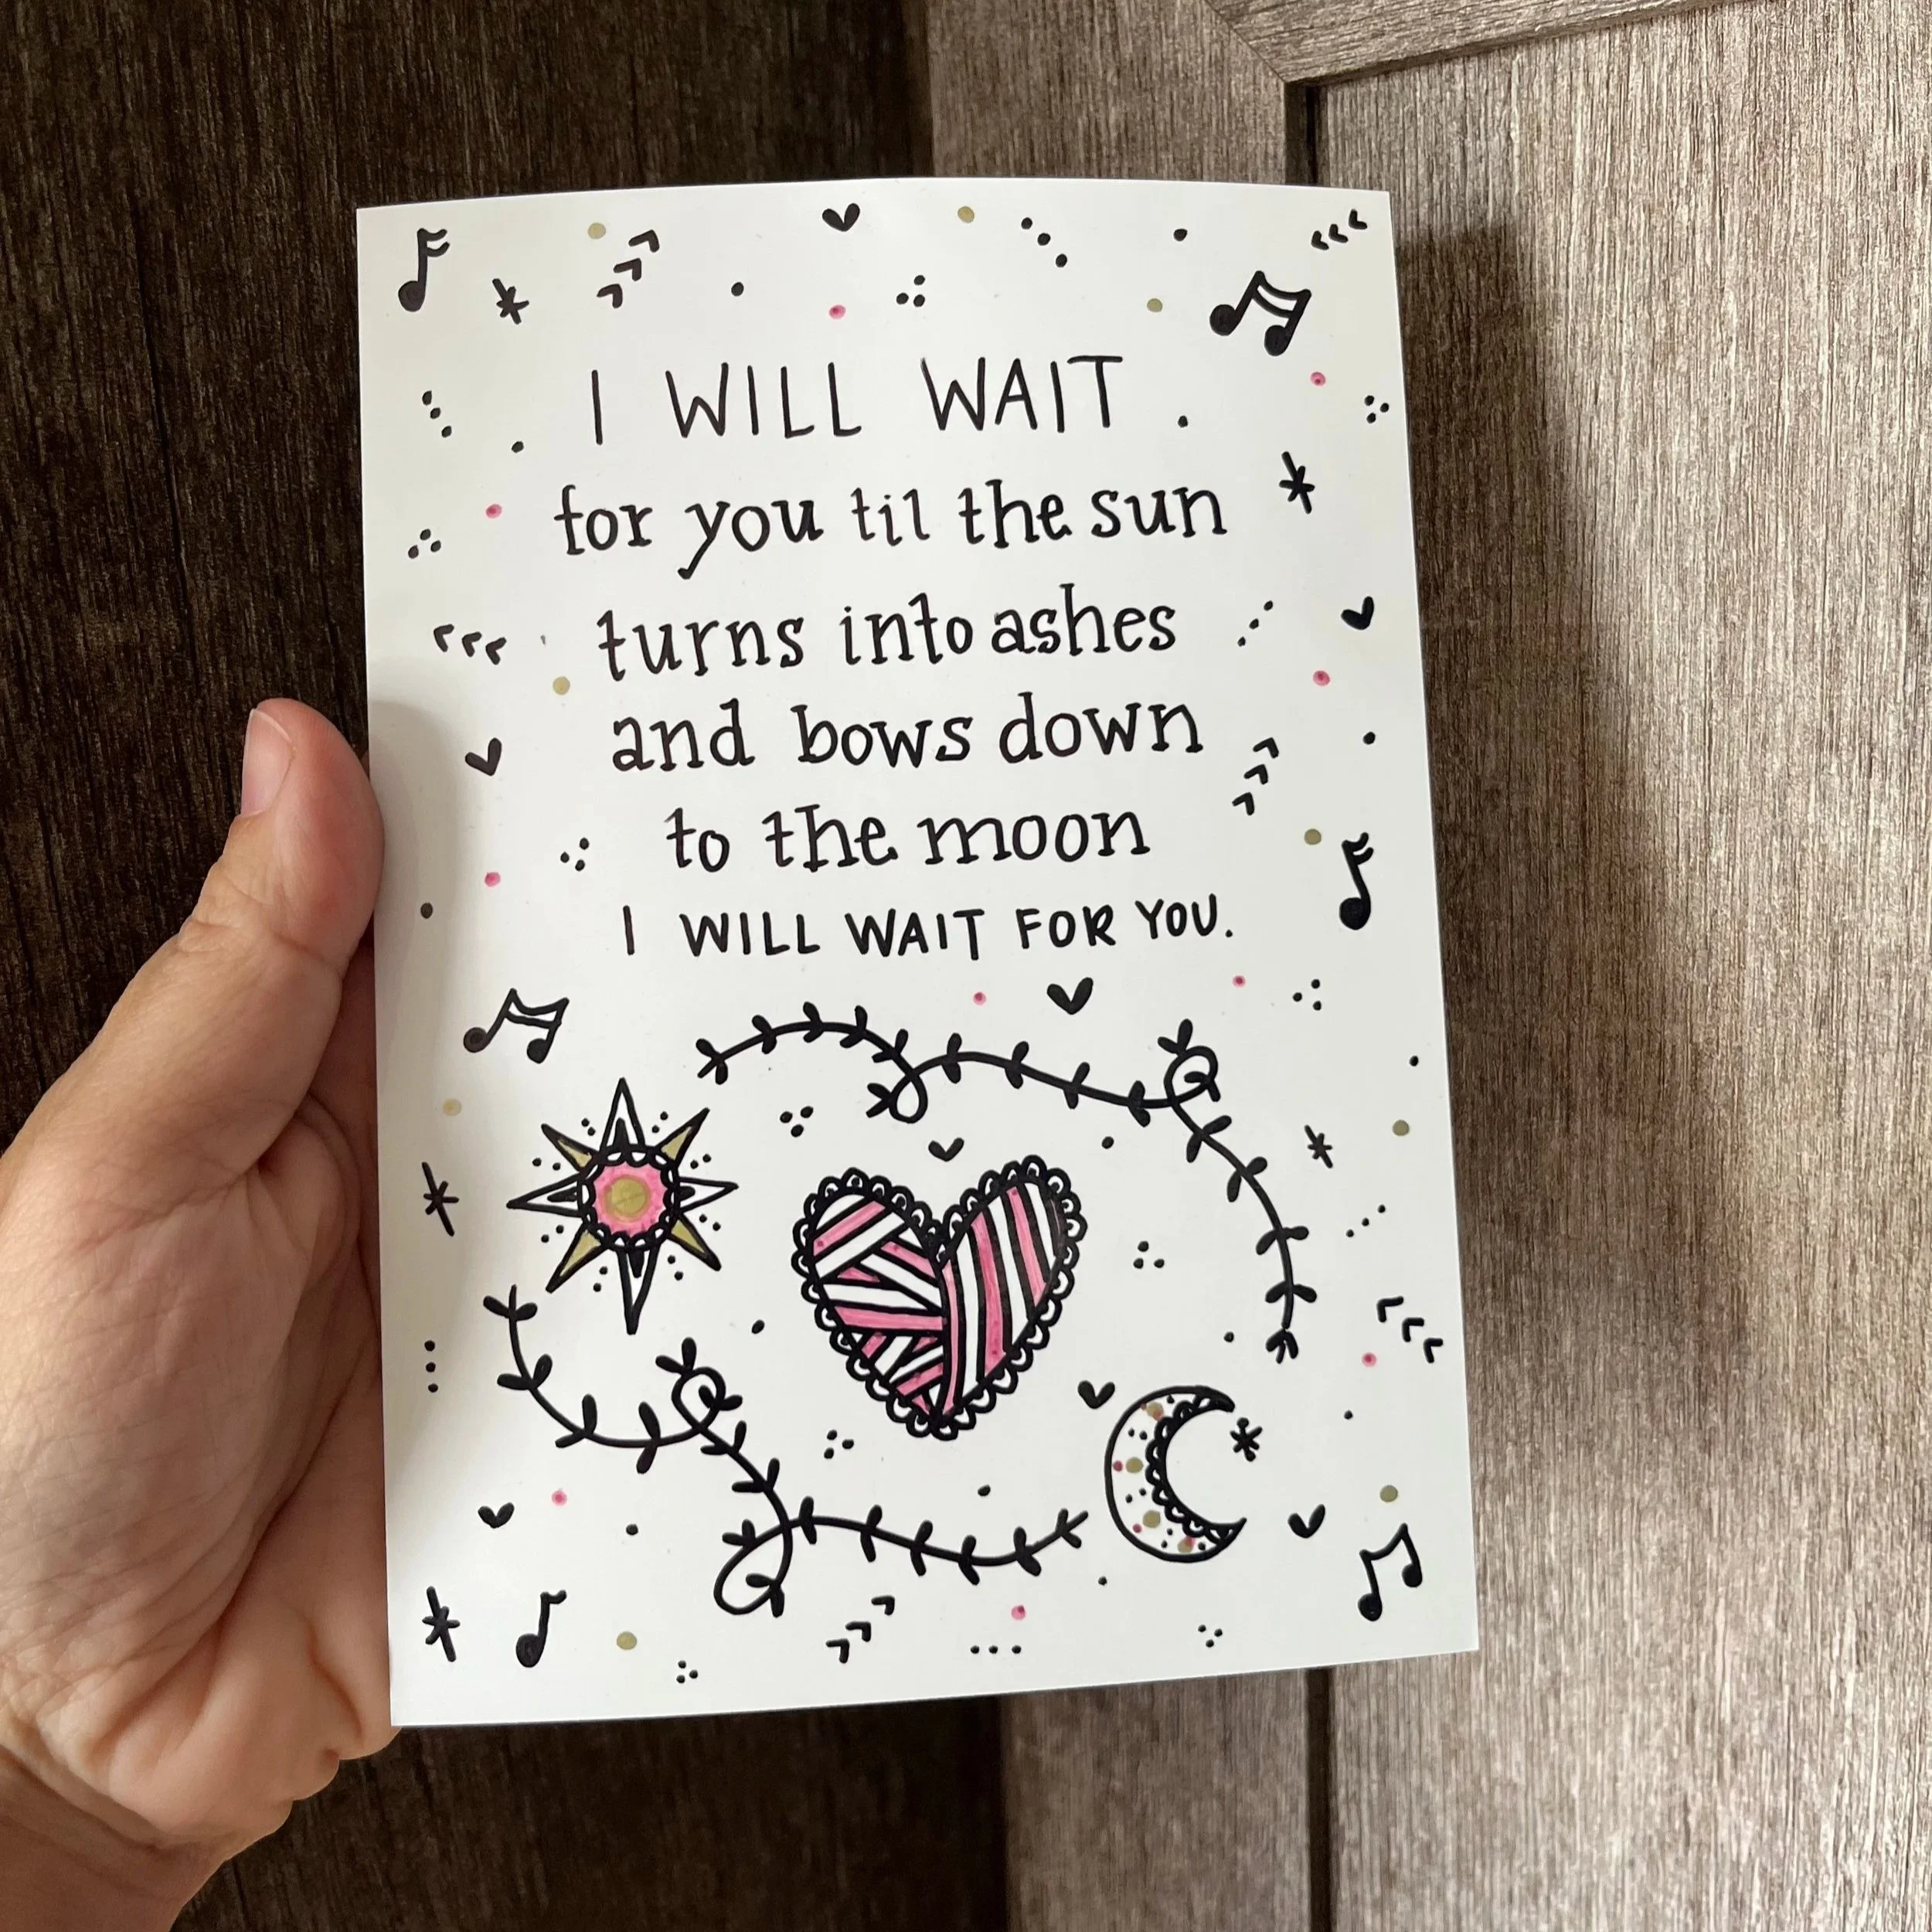 I WILL WAIT
for you til the sun
turns into ashes
and bows down
to the moon
I WILL WAIT FOR YOU.